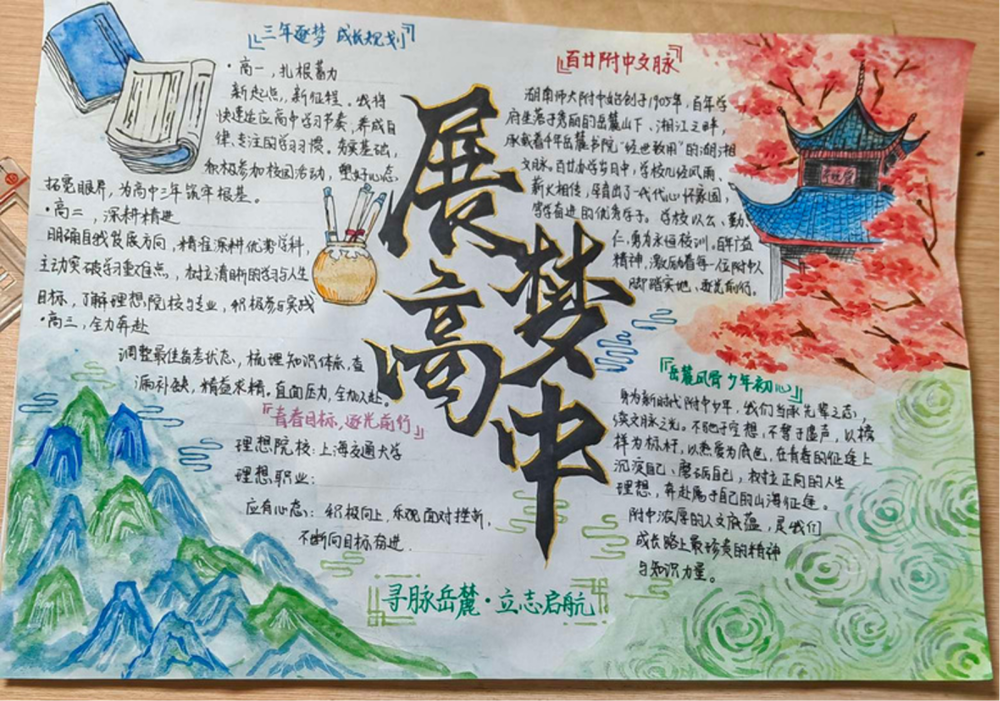 三年逐梦 成长规划
·高一，扎根蓄力
新起点，新征程。我将
快速适应高中学习节奏，养成自
律、专注的学习习惯。夯实基础，
积极参加校园活动，塑好心态
拓宽眼界，为高中三年筑牢根基。
·高二，深耕精进
明确自我发展方向，精准深耕优秀学科，
主动突破学习重难点，树立清晰的学习与人生
目标，了解理想院校与专业，积极参与实践
·高三，全力奔赴
调整最佳备考状态，梳理知识体系，查
漏补缺，精益求精。直面压力，全力以赴。
『青春目标，逐光前行』
理想院校：上海交通大学
理想职业：
应有心态：积极向上，乐观面对挫折，
不断向目标奋进.
展
梦
高
中
寻脉岳麓·立志启航
百廿附中文脉
湖南师大附中始创于1905年，百年学
府坐落于秀丽的岳麓山下、湘江之畔，
承载着千年岳麓书院“经世致用”的湖湘
文脉。百廿办学岁月中，学校几经风雨、
薪火相传，孕育出了一代代心怀家国，
笃学奋进的优秀学子。学校以公、勤、
仁、勇为永恒校训，百年
精神，激励着每一位附中人
脚踏实地、逐光前行。
『岳麓风骨 少年初心』
身为新时代附中少年，我们当承先辈之志，
续文脉之光。不驰于空想，不骛于虚声，以榜
样为标杆，以热爱为底色，在青春的征途上
沉淀自己、磨砺自己，树立正向的人生
理想，奔赴属于自己的山海征途。
附中浓厚的人文底蕴，是我们
成长路上最珍贵的精神
与知识力量。